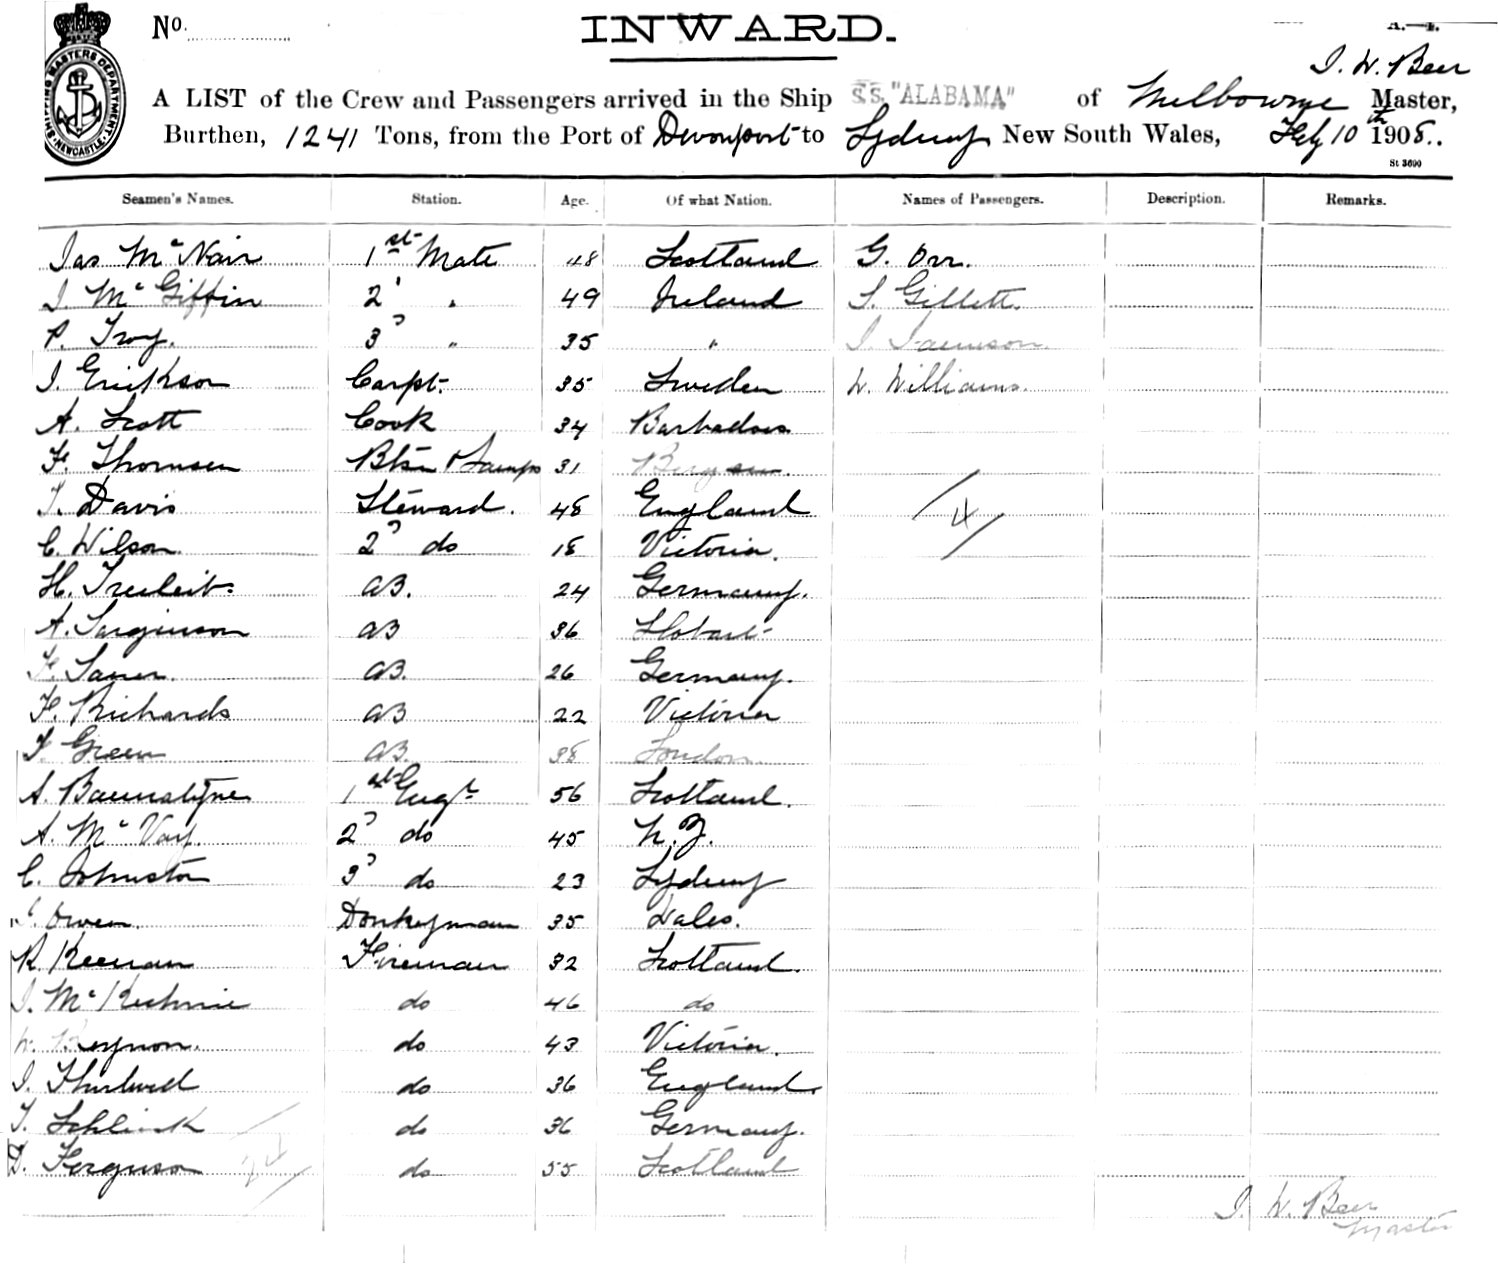 No. INWARD. A.—4.
SHIPPING MASTERS DEPARTMENT NEWCASTLE
J. W. Beer
A LIST of the Crew and Passengers arrived in the Ship S.S. "ALABAMA" of Melbourne Master,
Burthen, 1241 Tons, from the Port of Devonport to Sydney New South Wales, Feby 10th 1908.
St 3690
Seamen's Names. Station. Age. Of what Nation. Names of Passengers. Description. Remarks.
Jas McNair 1st Mate 48 Scotland G. Orr.
J. McGiffin 2d " 49 Ireland S. Gillett.
P. Troy. 3d " 35 " J. Jameson.
J. Erickson Carpt. 35 Sweden W. Williams.
A. Scott Cook 34 Barbadoes
F. Thomsen Btsn & Lamps 31 Bergen.
T. Davis Steward. 48 England 4
C. Wilson. 2d do 18 Victoria.
H. AB. 24 Germany.
A. Sarginson AB 36 Hobart
F. AB. 26 Germany.
F. Richards AB 22 Victoria
F. Green AB. 38 London
A. Bannatyne 1st Engr 56 Scotland.
A. McVay. 2d do 45 N.Z.
C. Johnston 3d do 23 Sydney
Owen. Donkeyman 35 Wales.
R. Keenan Fireman 32 Scotland.
J. McKechnie do 46 do
W. Beynon. do 43 Victoria.
J. Thirlwell do 36 England.
T. Schlink do 36 Germany.
D. Ferguson 24 do 55 Scotland
J. W. Beer
Master